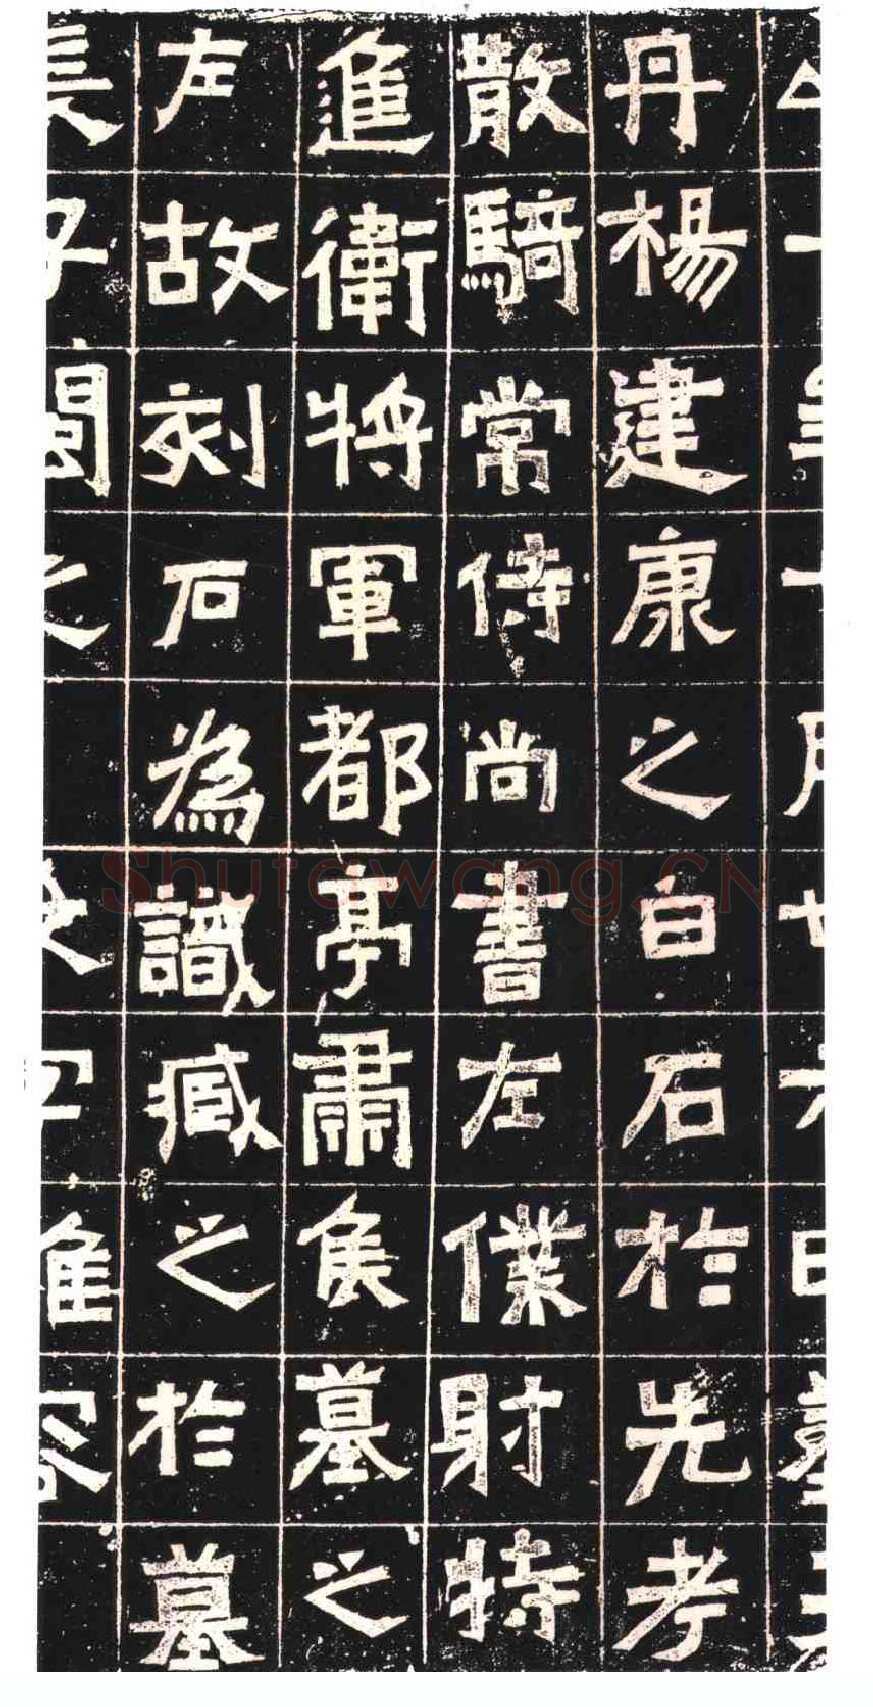 丹楊建康之白石於先考
散騎常侍尚書左僕射特
進衛將軍都亭肅侯墓之
左故刻石為識臧之於墓
長子閩之
Shufawang.CN